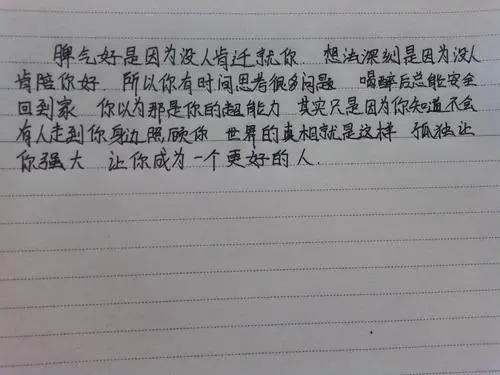 脾气好是因为没人肯迁就你 想法深刻是因为没人
肯陪你好 所以你有时间思考很多问题 喝醉后总能安全
回到家 你以为那是你的超能力 其实只是因为你知道不会
有人走到你身边照顾你 世界的真相就是这样 孤独让
你强大 让你成为一个更好的人.